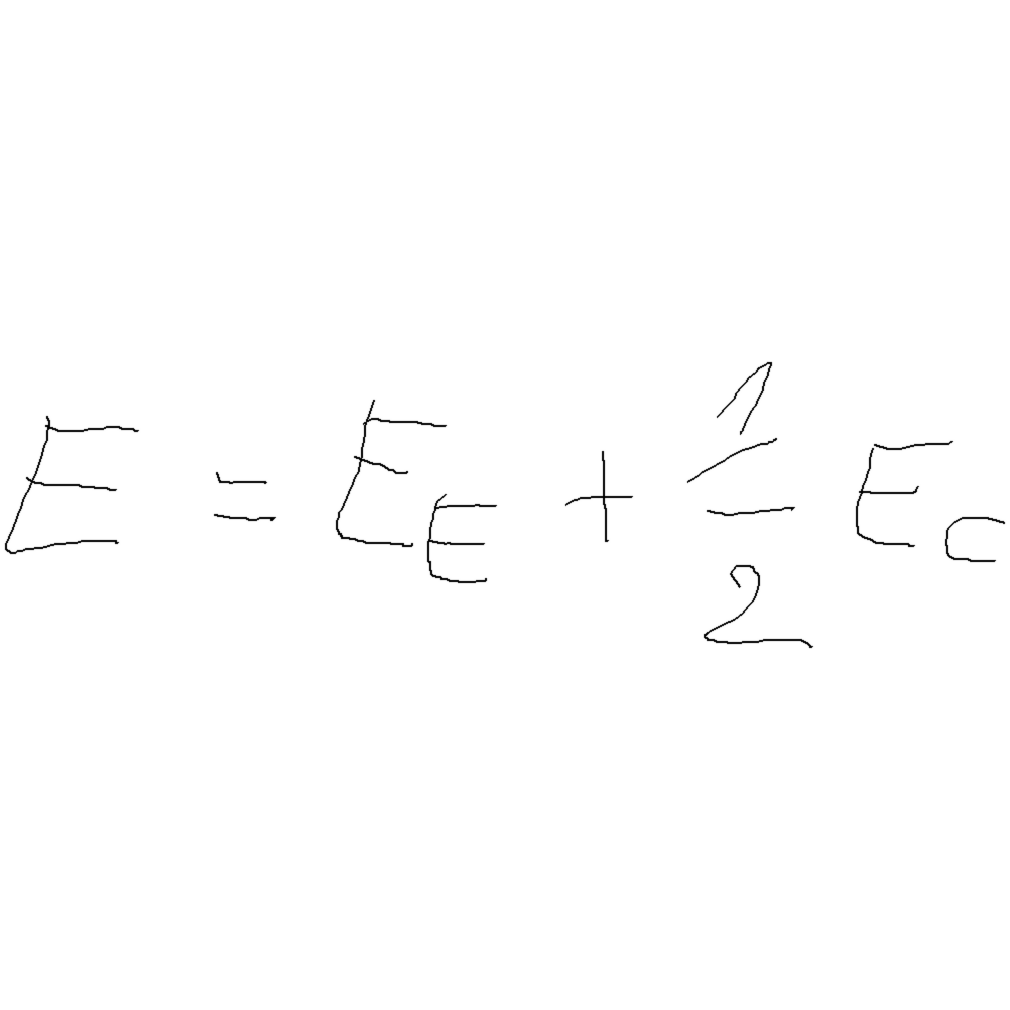 E = E_E + \frac{1}{2} E_C